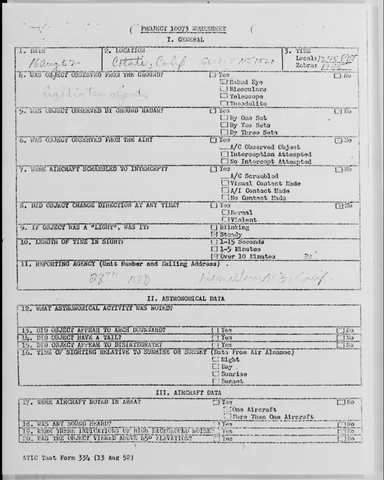 ( PROJECT 10073 WORKSHEET )
I. GENERAL
1. DATE 2. LOCATION 3. TIME
16 Aug 52 Calif Local:
Zebra:
4. WAS OBJECT OBSERVED FROM THE GROUND? Yes No
Naked Eye
Binoculars
Telescope
Theodolite
5. WAS OBJECT OBSERVED BY GROUND RADAR? Yes No
By One Set
By Two Sets
By Three Sets
6. WAS OBJECT OBSERVED FROM THE AIR? Yes No
A/C Observed Object
Interception Attempted
No Intercept Attempted
7. WERE AIRCRAFT SCRAMBLED TO INTERCEPT? Yes No
A/C Scrambled
Visual Contact Made
A/I Contact Made
No Contact Made
8. DID OBJECT CHANGE DIRECTION AT ANY TIME? Yes No
Normal
Violent
9. IF OBJECT WAS A "LIGHT", WAS IT: Blinking
Steady
10. LENGTH OF TIME IN SIGHT: 1-15 Seconds
1-5 Minutes
Over 10 Minutes
11. REPORTING AGENCY (Unit Number and Mailing Address)
28th Hamilton Calif
II. ASTRONOMICAL DATA
12. WHAT ASTRONOMICAL ACTIVITY WAS NOTED?
13. DID OBJECT APPEAR TO ARCH DOWNWARD? Yes No
14. DID OBJECT HAVE A TAIL? Yes No
15. DID OBJECT APPEAR TO DISINTEGRATE? Yes No
16. TIME OF SIGHTING RELATIVE TO SUNRISE OR SUNSET (Data From Air Almanac)
Night
Day
Sunrise
Sunset
III. AIRCRAFT DATA
17. WERE AIRCRAFT NOTED IN AREA? Yes No
One Aircraft
More Than One Aircraft
18. WAS ANY SOUND HEARD? Yes No
19. WERE THERE INDICATIONS OF HIGH BACKGROUND NOISE? Yes No
20. WAS THE OBJECT VIEWED ABOVE 45° ELEVATION? Yes No
ATIC Test Form 334 (13 Aug 52)